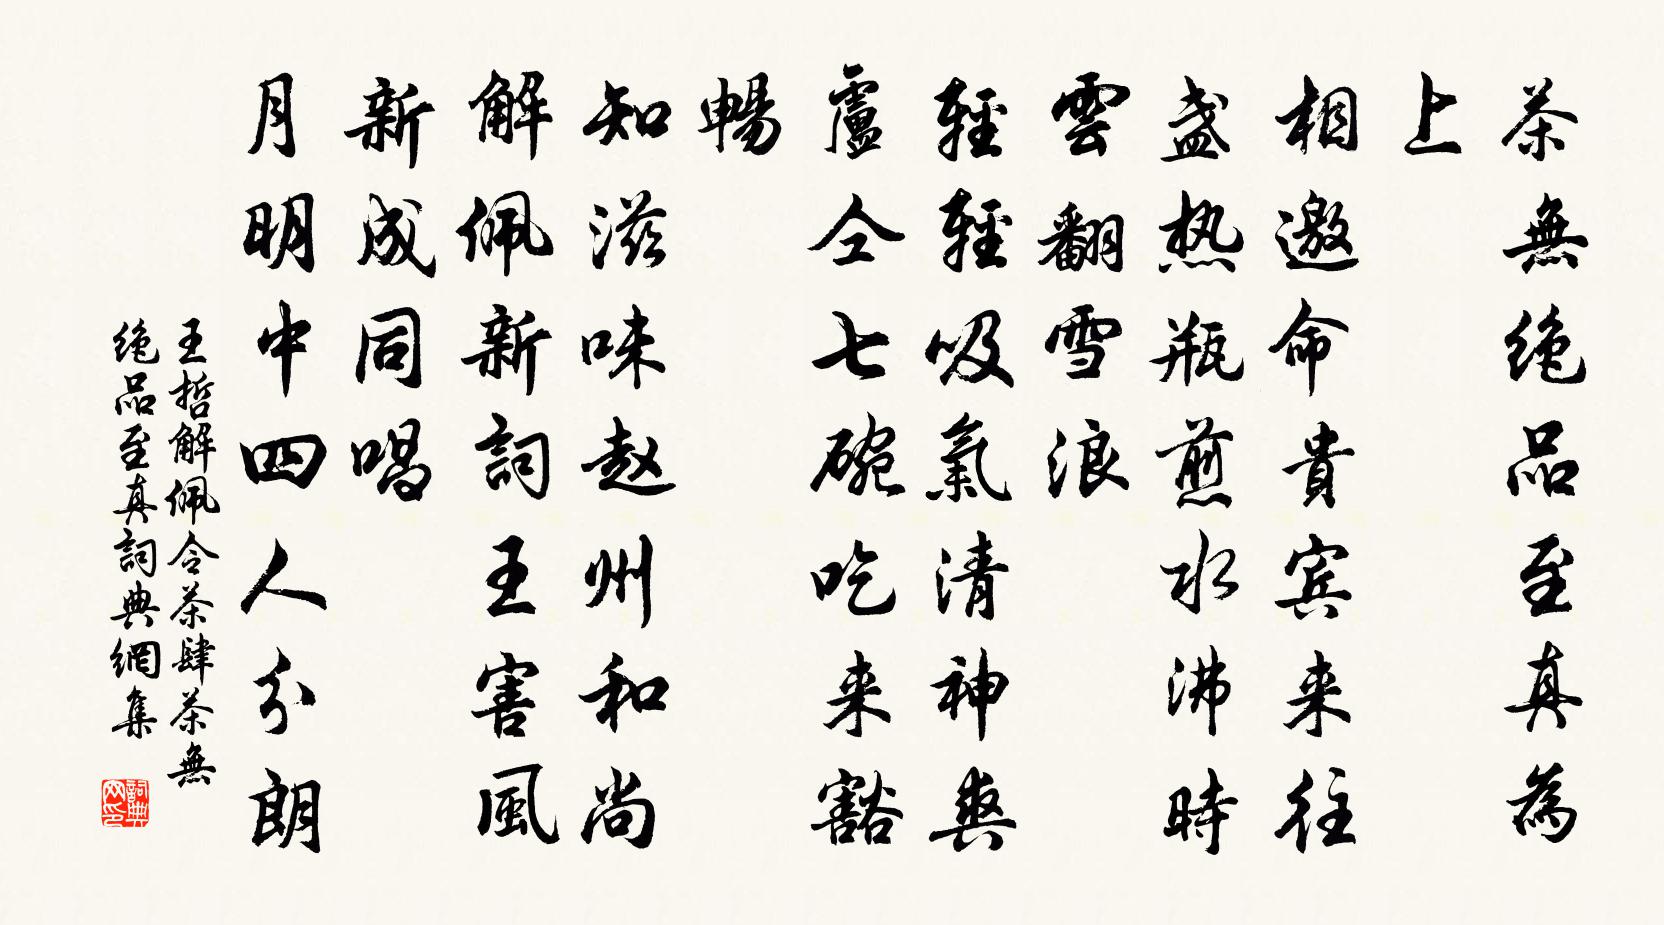 茶無绝品至真為
上
相邀命貴宾来往
盏热瓶煎水沸時
雲翻雪浪
輕輕吸氣清神爽
盧仝七碗吃来豁
暢
知滋味赵州和尚
解佩新詞王害風
新成同唱
月明中四人分朗
王哲解佩令茶肆茶無
绝品至真詞典網集
詞典网印